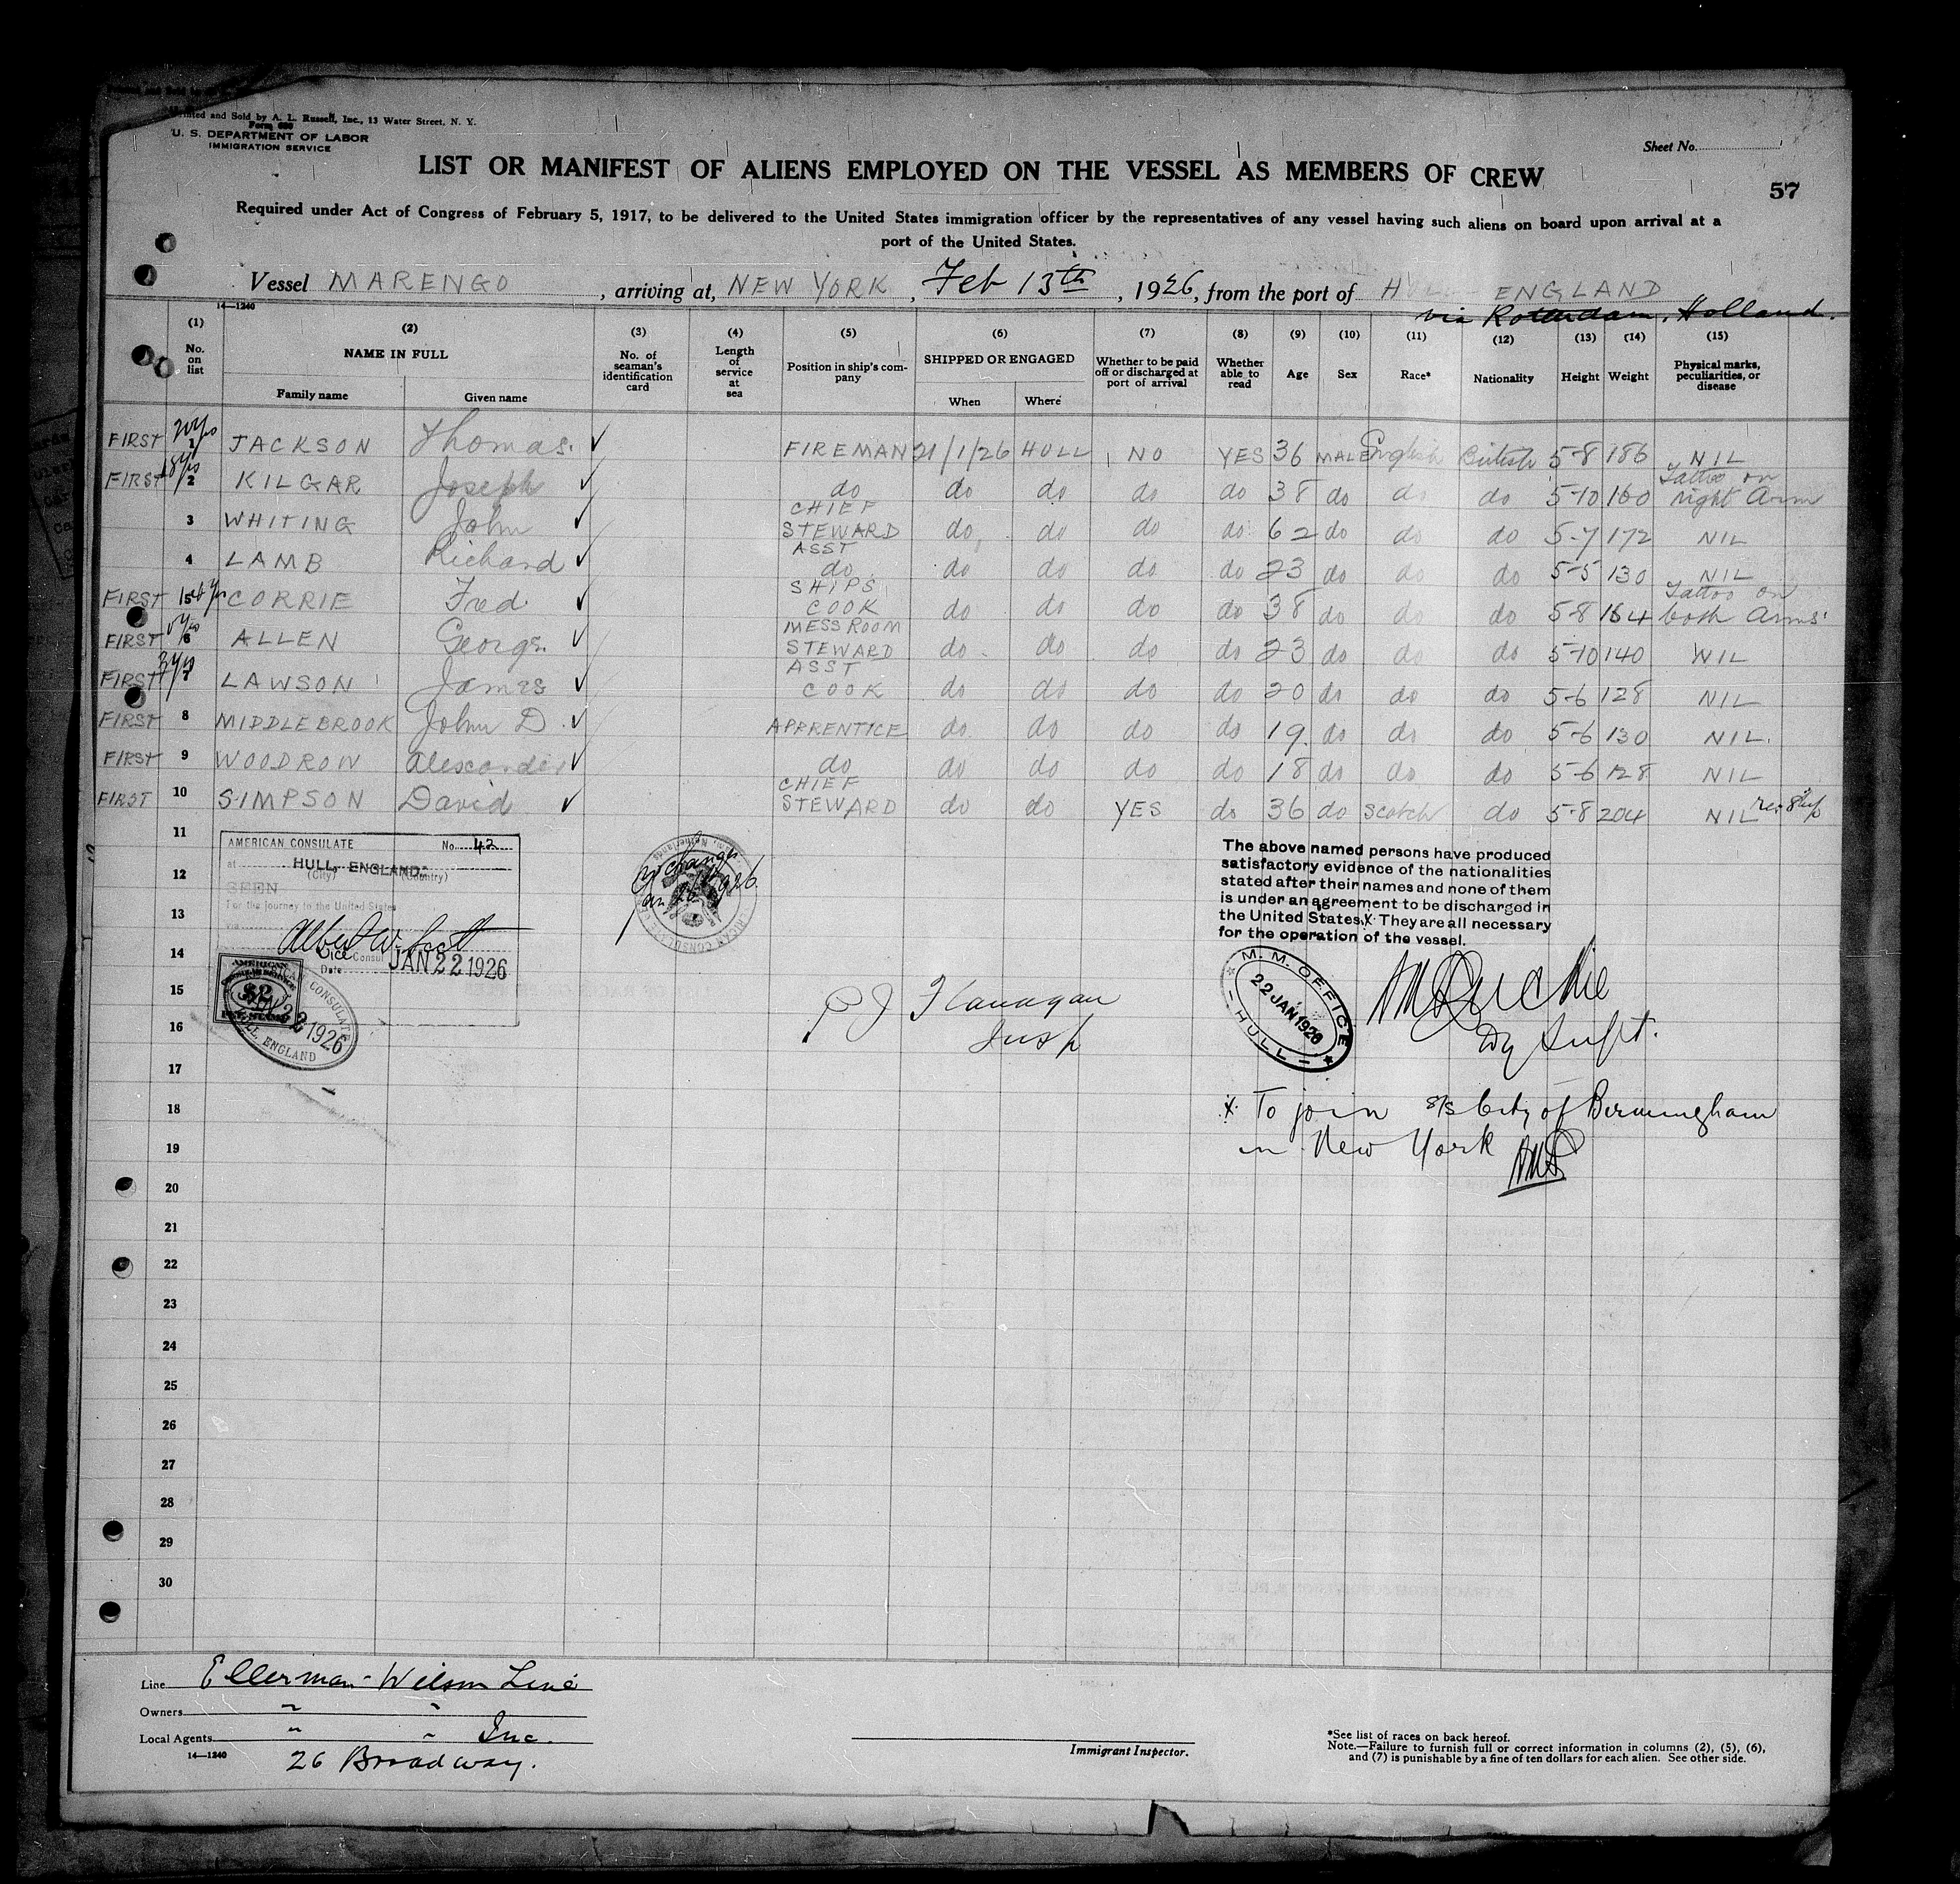 Printed and Sold by A. L. Russell, Inc., 13 Water Street, N. Y.
Form 680
U. S. DEPARTMENT OF LABOR
IMMIGRATION SERVICE
Sheet No.
LIST OR MANIFEST OF ALIENS EMPLOYED ON THE VESSEL AS MEMBERS OF CREW
57
Required under Act of Congress of February 5, 1917, to be delivered to the United States immigration officer by the representatives of any vessel having such aliens on board upon arrival at a
port of the United States.
Vessel MARENGO, arriving at, NEW YORK, Feb 13th, 1926, from the port of ENGLAND
via Rotterdam, Holland.
14—1240
(1) (2) (3) (4) (5) (6) (7) (8) (9) (10) (11) (12) (13) (14) (15)
No. on list NAME IN FULL No. of seaman's identification card Length of service at sea Position in ship's company SHIPPED OR ENGAGED Whether to be paid off or discharged at port of arrival Whether able to read Age Sex Race* Nationality Height Weight Physical marks, peculiarities, or disease
Family name Given name When Where
FIRST 20 yrs 1 JACKSON Thomas. ✓ FIREMAN 21/1/26 HULL NO YES 36 MALE English British 5-8 186 NIL
FIRST 18 yrs 2 KILGAR Joseph ✓ do do do do do 38 do do do 5-10 160 Tattoo on right Arm
3 WHITING John ✓ CHIEF STEWARD do do do do 62 do do do 5-7 172 NIL
4 LAMB Richard ✓ ASST do do do do do 23 do do do 5-5 130 NIL
FIRST 5 CORRIE Fred ✓ SHIPS COOK do do do do 38 do do do 5-8 164 Tattoo on both Arms
FIRST 6 ALLEN George ✓ MESS ROOM STEWARD do do do do 23 do do do 5-10 140 NIL
FIRST 3 yrs 7 LAWSON James ✓ ASST COOK do do do do 20 do do do 5-6 128 NIL
FIRST 8 MIDDLEBROOK John D ✓ APPRENTICE do do do do 19 do do do 5-6 130 NIL.
FIRST 9 WOODROW Alexander ✓ do do do do do 18 do do do 5-6 128 NIL
FIRST 10 SIMPSON David ✓ CHIEF STEWARD do do YES do 36 do Scotch do 5-8 204 NIL
11
12
13
14
15
16
17
18
19
20
21
22
23
24
25
26
27
28
29
30
AMERICAN CONSULATE No. 42
at HULL, ENGLAND.
(City) (Country)
SEEN
For the journey to the United States
via
Albert W. Scott
Vice Consul
Date JAN 22 1926
AMERICAN
$2
AMERICAN CONSULATE
JAN 22 1926
HULL, ENGLAND
No change
Jan 26 1926
AMERICAN CONSULATE
Netherlands
P J Flanagan
Insp
The above named persons have produced
satisfactory evidence of the nationalities
stated after their names and none of them
is under an agreement to be discharged in
the United States. X They are all necessary
for the operation of the vessel.
M. M. OFFICE
22 JAN 1926
HULL
Dy Supt.
X To join s/s City of Birmingham
in New York
Line Ellerman-Wilson Line
Owners " "
Local Agents " " Inc.
14—1240
26 Broadway.
Immigrant Inspector.
*See list of races on back hereof.
Note.—Failure to furnish full or correct information in columns (2), (5), (6),
and (7) is punishable by a fine of ten dollars for each alien. See other side.